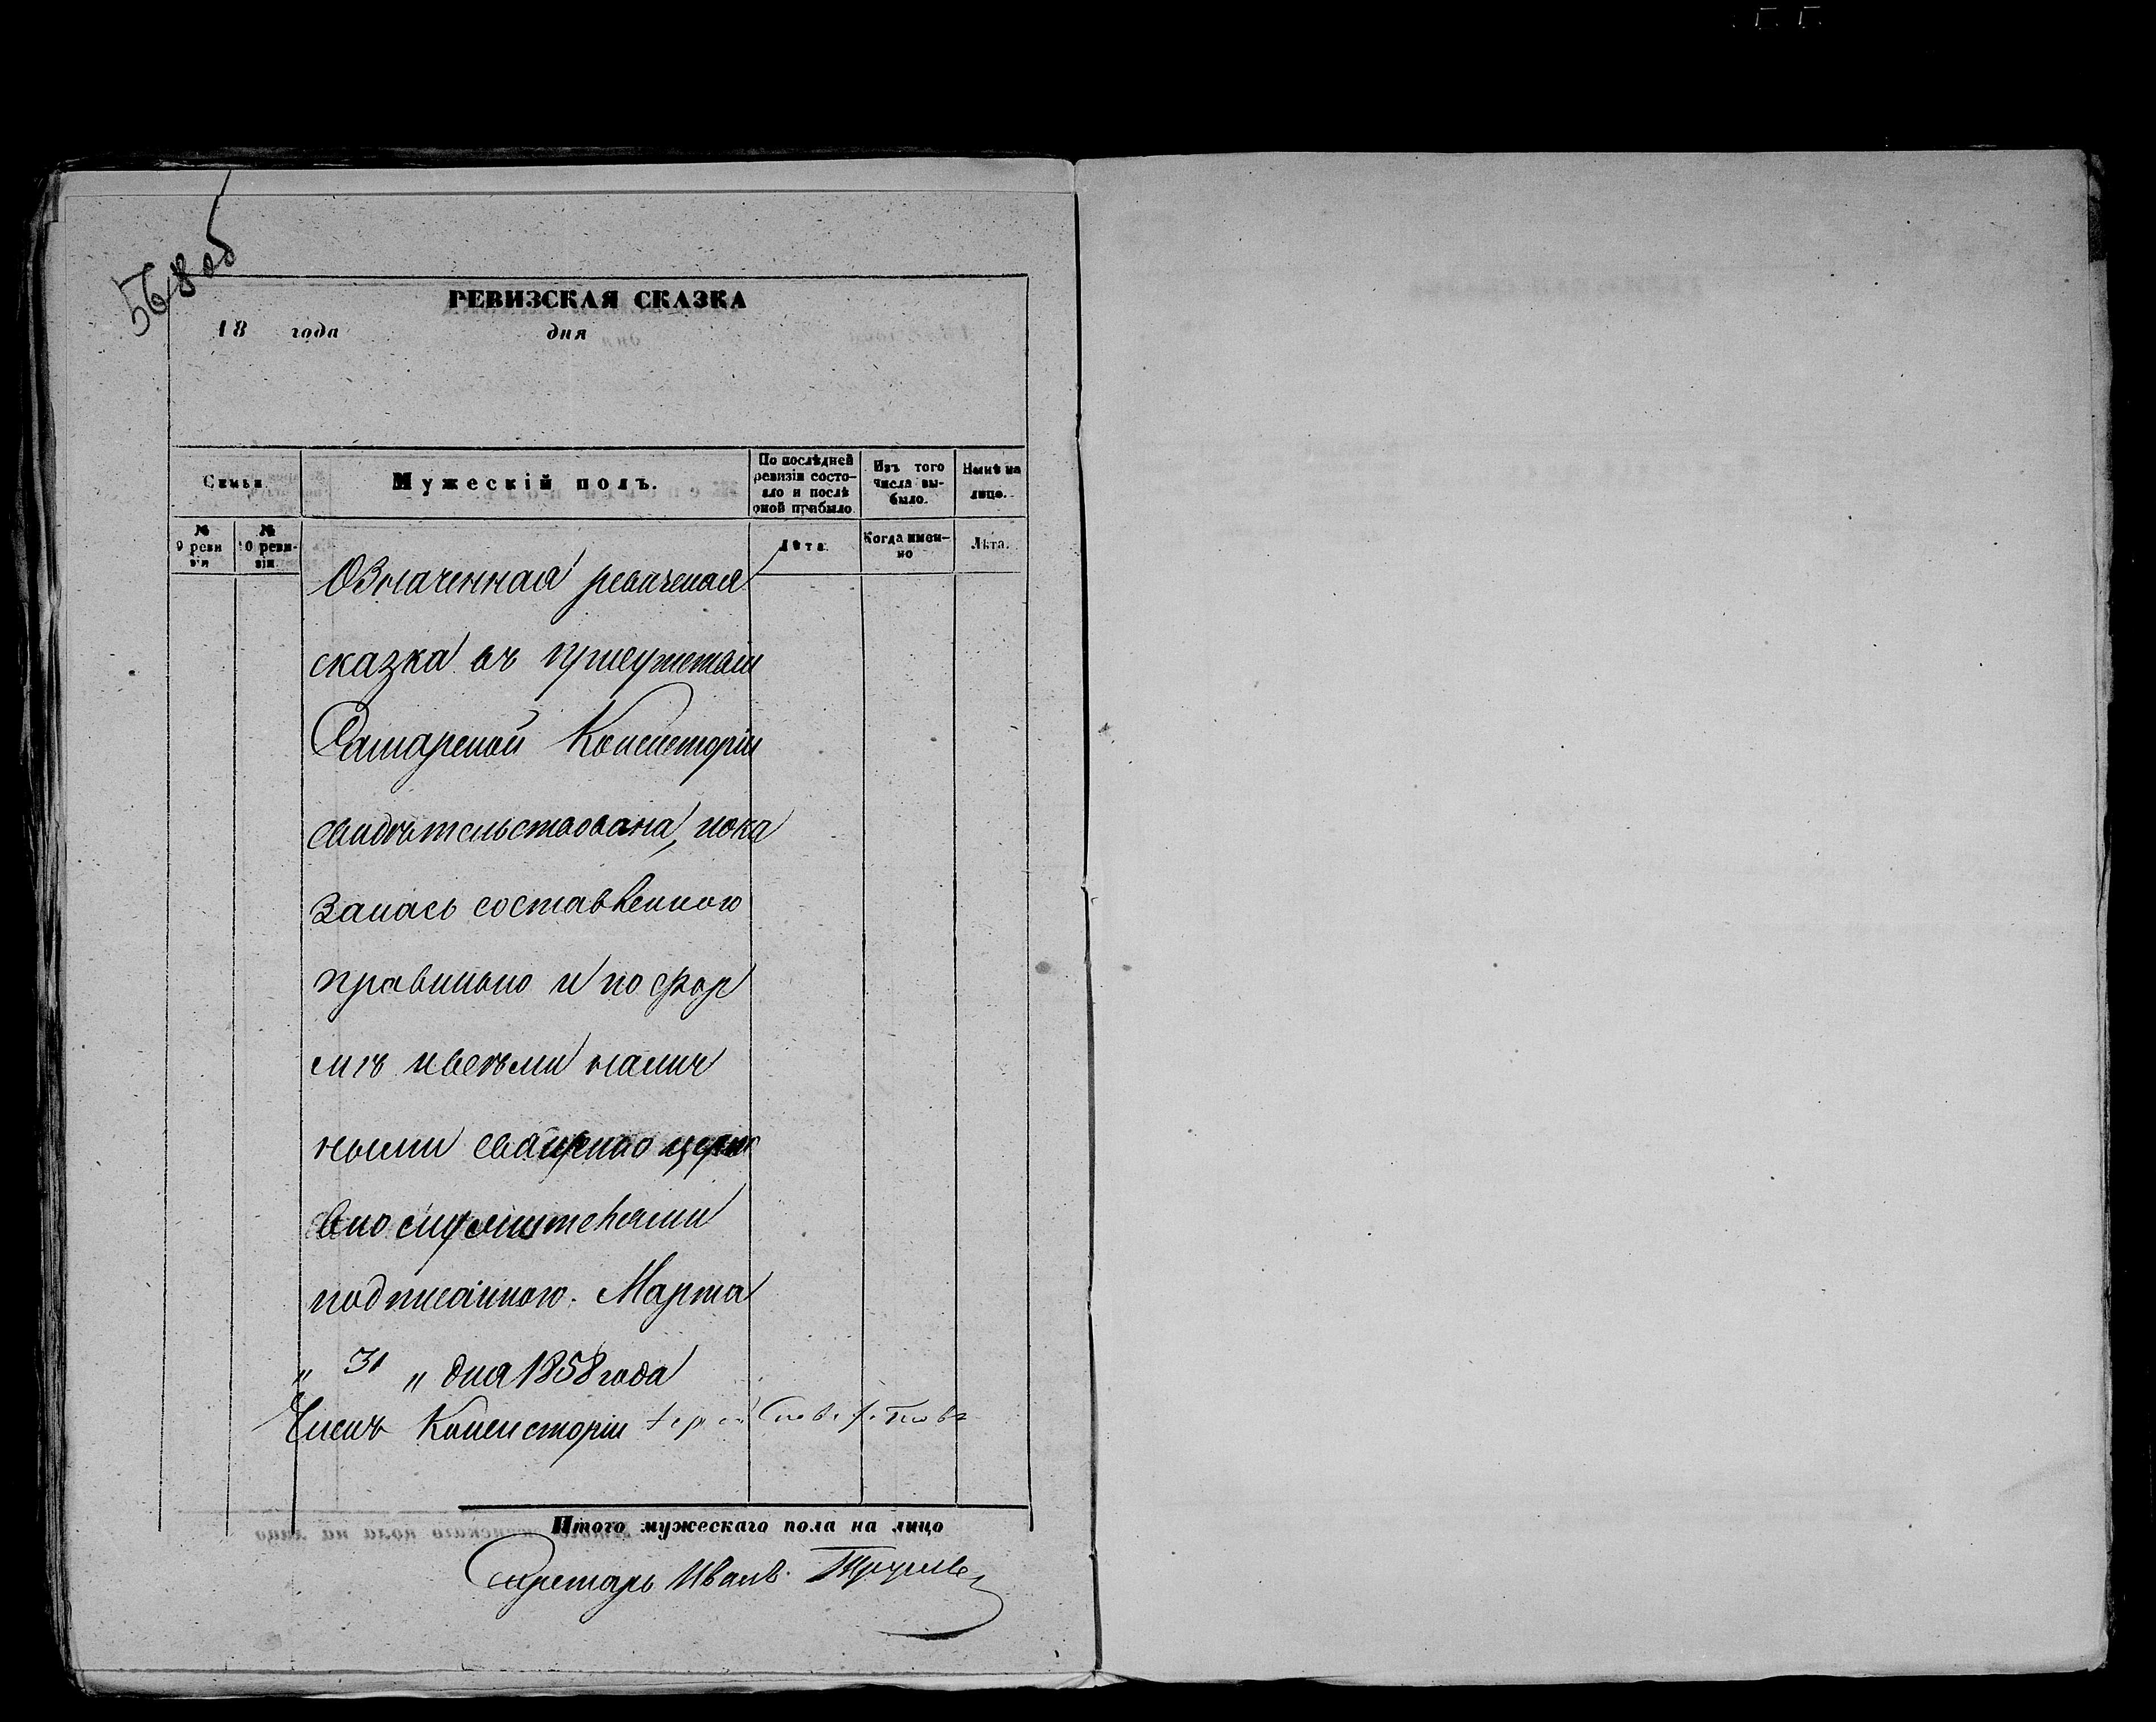 568об
РЕВИЗСКАЯ СКАЗКА
18 года дня
Семьи.
Мужескій полъ.
По послѣдней ревизіи состо-
яло и послѣ оной прибыло
Изъ того числа вы-
было.
Нынѣ на лицо.
№ 9 реви
зіи
№ 10 реви-
зіи.
Лѣта.
Когда имен-
но
Лѣта.
Означенная ревизская
сказка въ присутствіи
Самарской Консисторіи
свидѣтельствована, пока
залась составленною
правильно и по фор
мѣ и всѣми налич
ными священно церко
вно служителями
подписанною. Марта
„ 31 „ дня 1858 года
Членъ Консисторіи
Итого мужескаго пола на лицо
Секретарь Иванъ